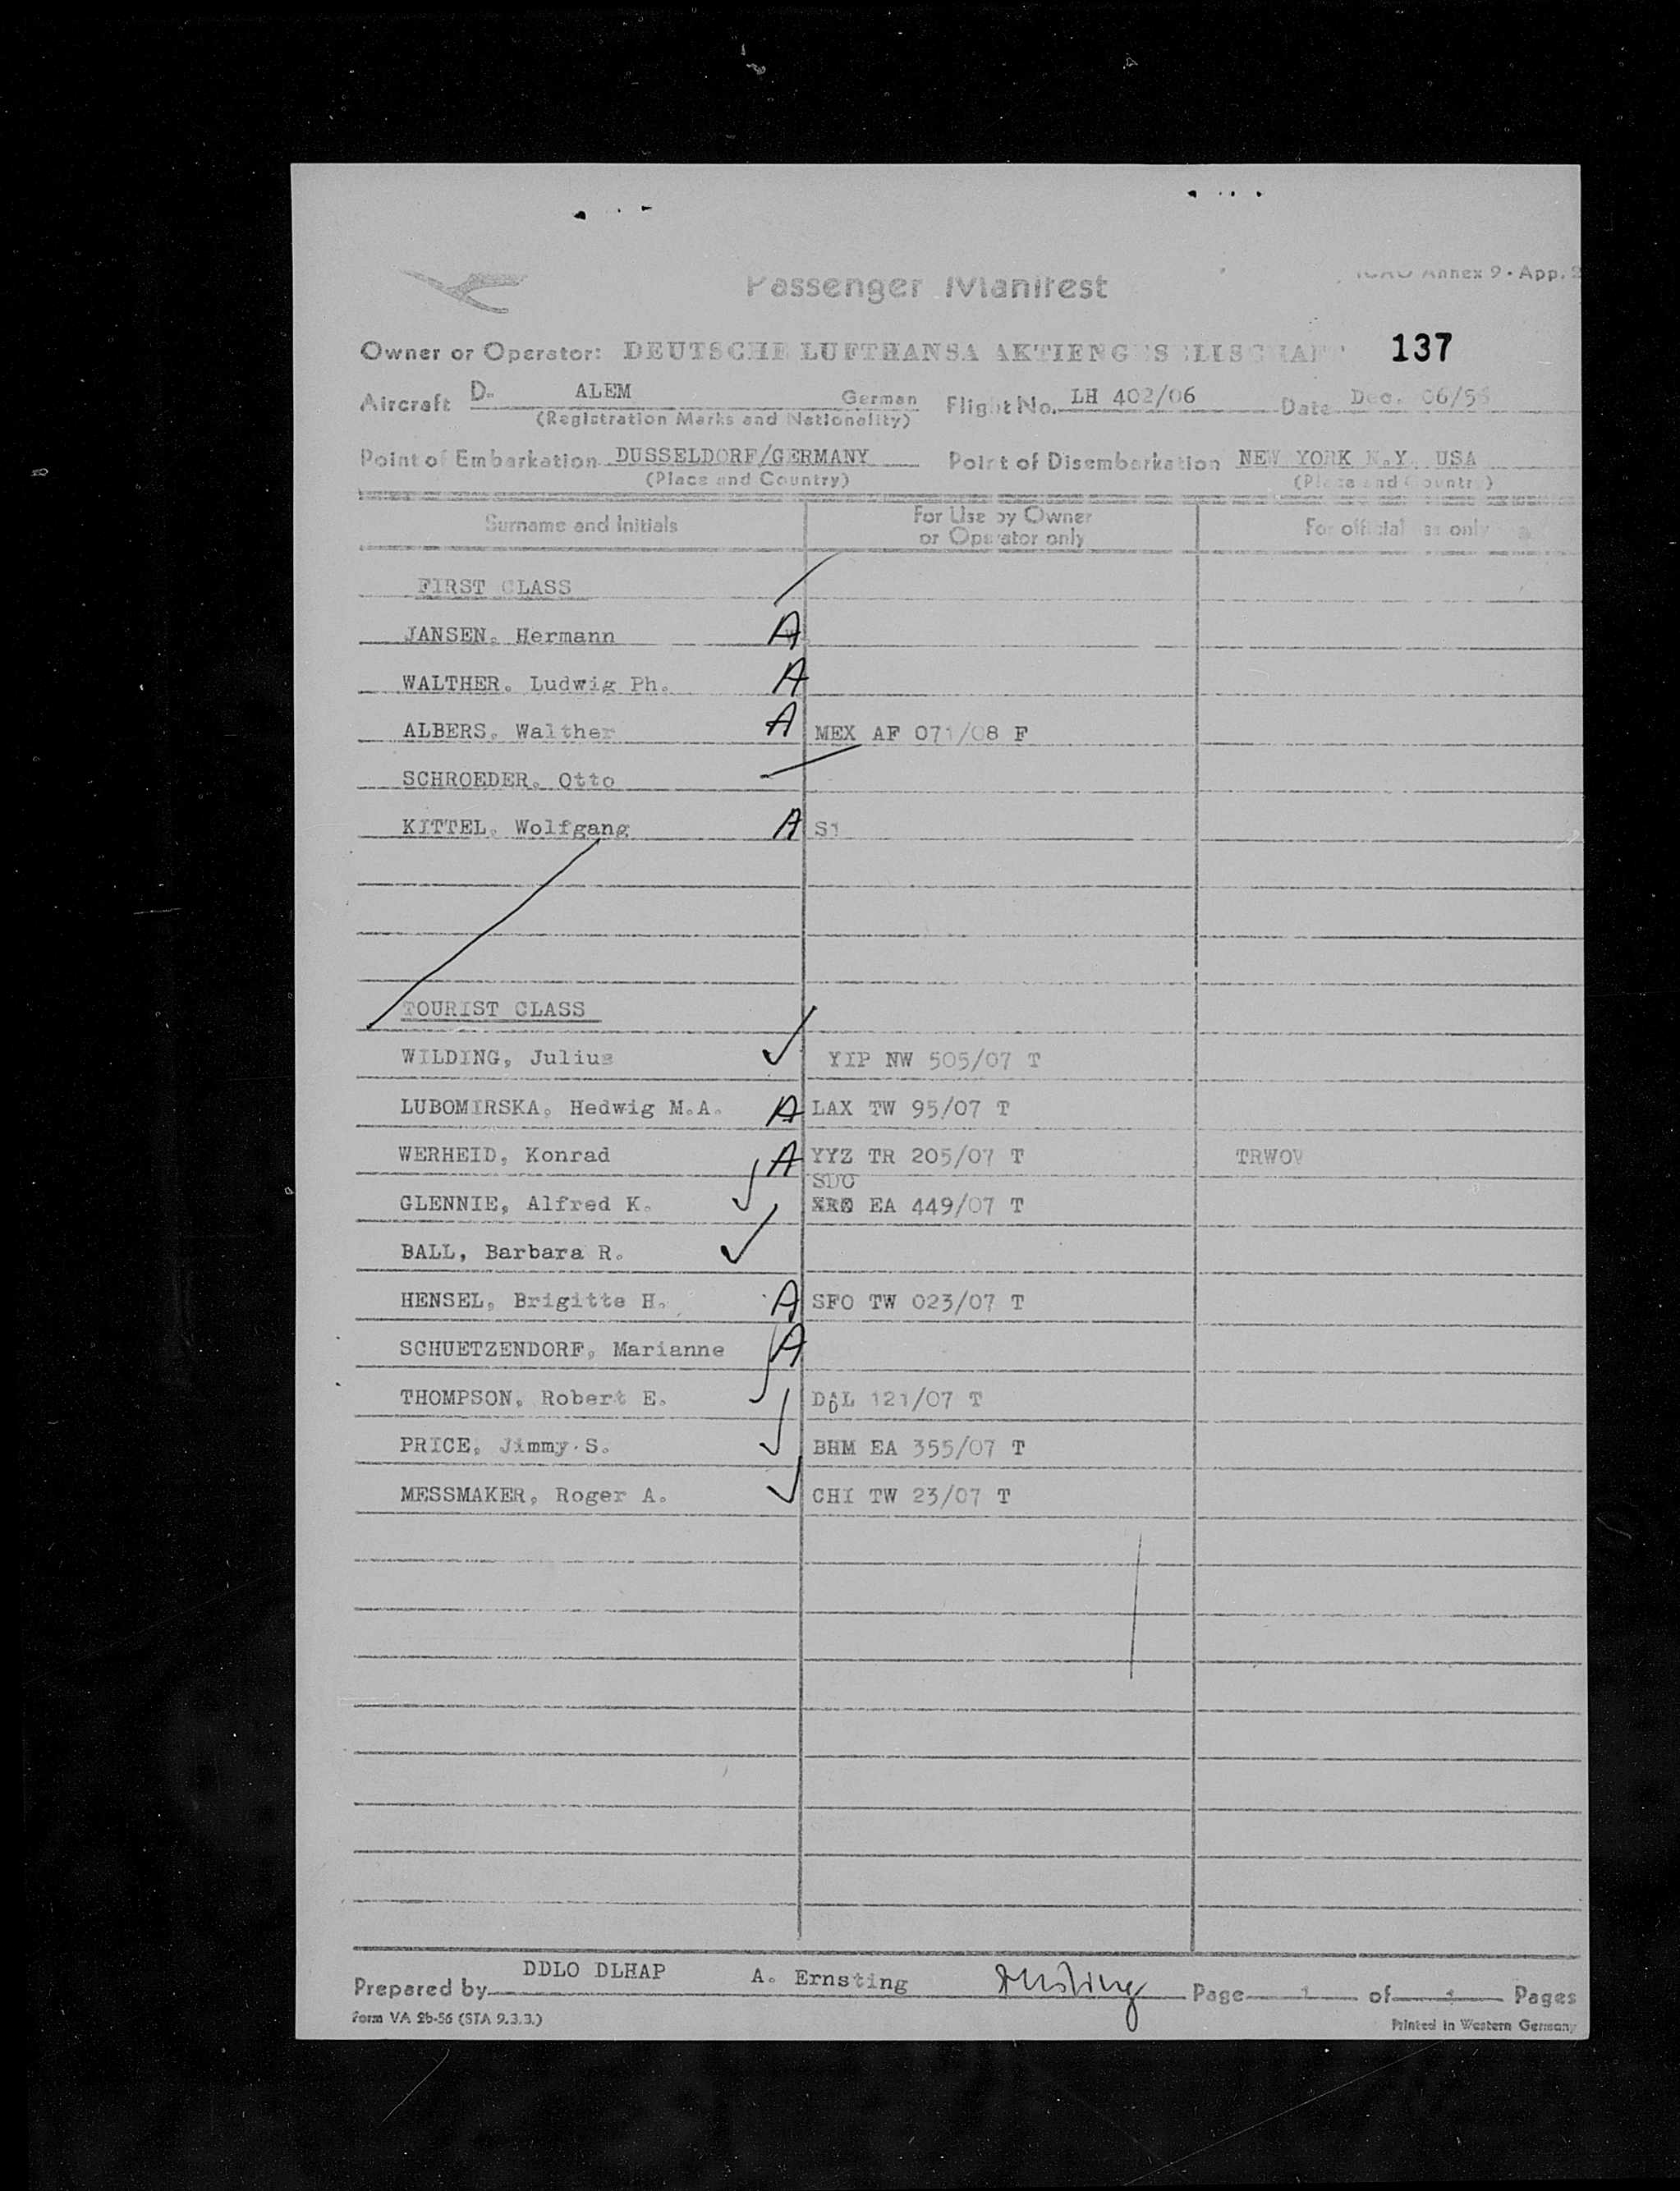 Passenger Manifest
ICAO Annex 9 · App. 2
Owner or Operator: DEUTSCHE LUFTHANSA AKTIENGESELLSCHAFT 137
Aircraft D- ALEM German Flight No. LH 402/06 Date Dec. 06/56
(Registration Marks and Nationality)
Point of Embarkation DUSSELDORF/GERMANY Point of Disembarkation NEW YORK N.Y. USA
(Place and Country) (Place and Country)
Surname and Initials For Use by Owner or Operator only For official use only
FIRST CLASS
JANSEN, Hermann A
WALTHER, Ludwig Ph. A
ALBERS, Walther A MEX AF 071/08 F
SCHROEDER, Otto
KITTEL, Wolfgang A S1
TOURIST CLASS
WILDING, Julius YIP NW 505/07 T
LUBOMIRSKA, Hedwig M.A. A LAX TW 95/07 T
WERHEID, Konrad A YYZ TR 205/07 T TRWOV
SDC
GLENNIE, Alfred K. EA 449/07 T
BALL, Barbara R.
HENSEL, Brigitte H. A SFO TW 023/07 T
SCHUETZENDORF, Marianne A
THOMPSON, Robert E. 121/07 T
PRICE, Jimmy S. BHM EA 355/07 T
MESSMAKER, Roger A. CHI TW 23/07 T
Prepared by DDLO DLHAP A. Ernsting Ernsting Page 1 of 1 Pages
Form VA 2b-56 (STA 9.3.3.) Printed in Western Germany